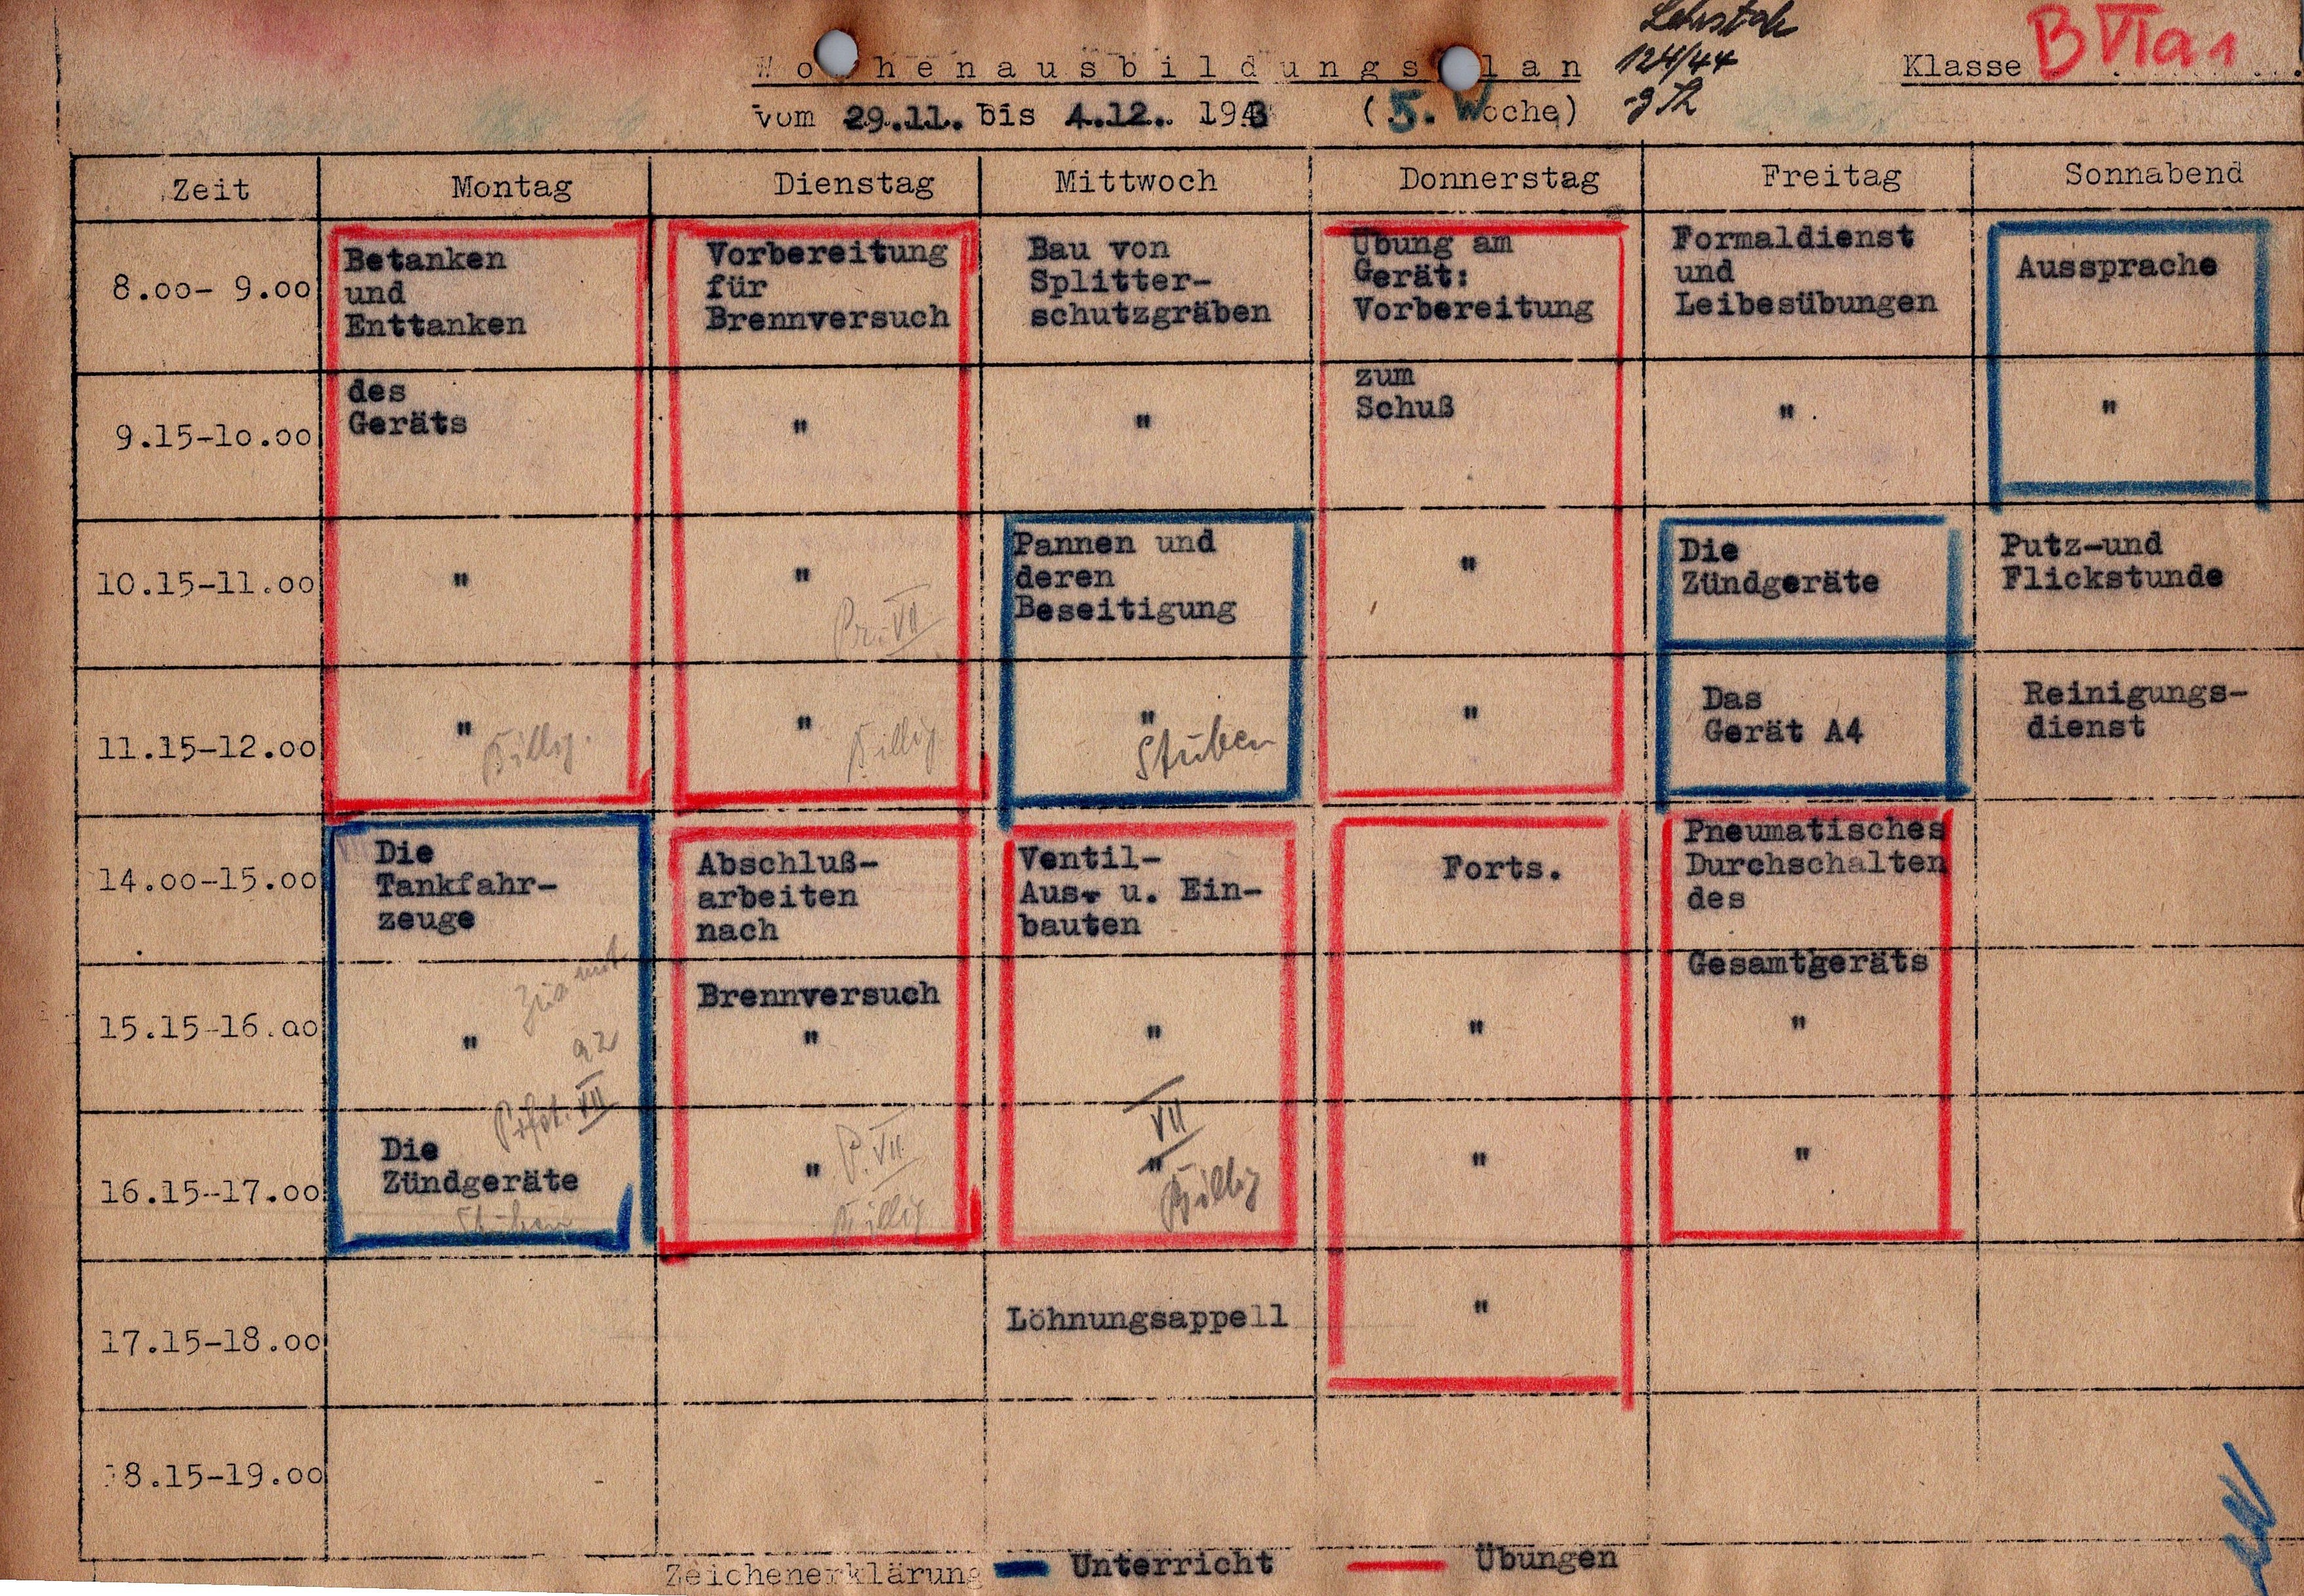 Wochenausbildungsplan
124/44
Klasse B VIa1
vom 29.11. bis 4.12. 1943 (5. Woche)
Zeit Montag Dienstag Mittwoch Donnerstag Freitag Sonnabend
8.oo- 9.oo
Betanken
und
Enttanken
Vorbereitung
für
Brennversuch
Bau von
Splitter-
schutzgräben
Übung am
Gerät:
Vorbereitung
Formaldienst
und
Leibesübungen
Aussprache
9.15-lo.oo
des
Geräts
"
"
zum
Schuß
"
"
10.15-11.oo
"
"
Pr. VII
Pannen und
deren
Beseitigung
"
Die
Zündgeräte
Putz-und
Flickstunde
11.15-12.oo
"
Billig.
"
Billig
"
Stüben
"
Das
Gerät A4
Reinigungs-
dienst
14.oo-15.oo
Die
Tankfahr-
zeuge
Abschluß-
arbeiten
nach
Ventil-
Aus- u. Ein-
bauten
Forts.
Pneumatisches
Durchschalten
des
15.15-16.oo
"
a2
Brennversuch
"
"
"
Gesamtgeräts
"
16.15-17.oo
VII
Die
Zündgeräte
Stüben
"
P. VII
Billig
VII
"
Billig
"
"
17.15-18.oo
Löhnungsappell
"
18.15-19.oo
Zeichenerklärung Unterricht Übungen